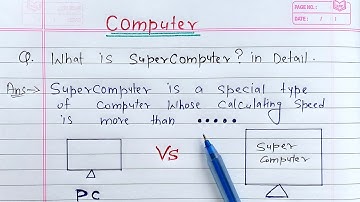 PAGE NO.:
DATE: / /
Computer
Q. What is SuperComputer? in Detail.
Ans:→ SuperComputer is a special type
of Computer Whose Calculating Speed
is more than •••••
VS
Super
Computer
PC